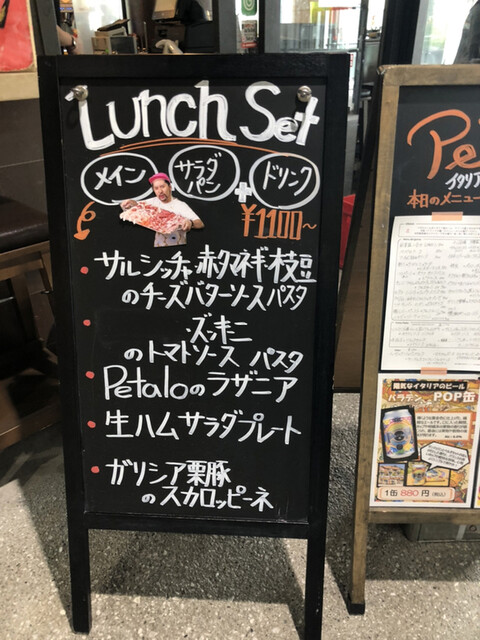 Lunch Set
メイン サラダ パン + ドリンク
¥1100~
・サルシッチャ赤タマネギ・枝豆
のチーズバターソースパスタ
・ズッキーニ
のトマトソース パスタ
・Petaloのラザニア
・生ハムサラダプレート
・ガリシア栗豚
のスカロッピーネ
Pe
イタリア
本日のメニュー
陽気なイタリアのビール
バラデン POP缶
1缶 880円(税込)